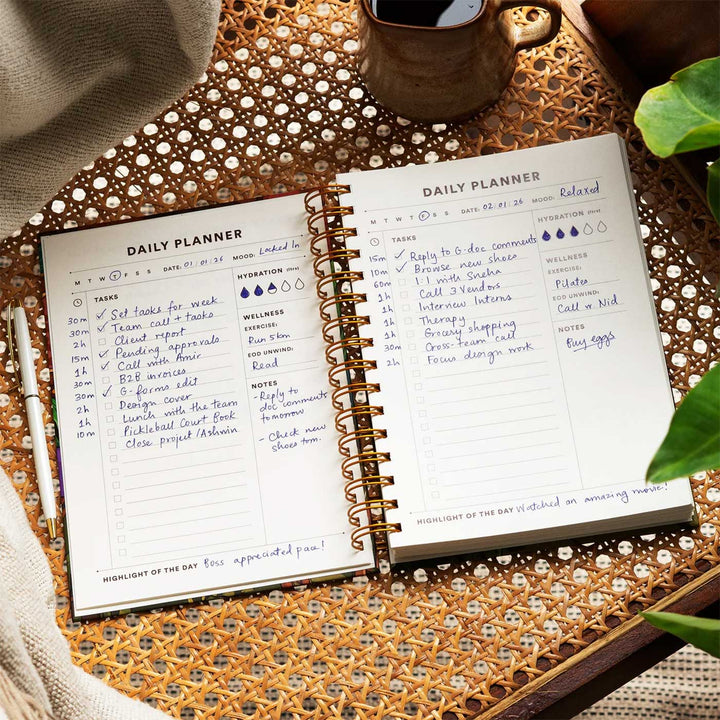 DAILY PLANNER
M T W T F S S DATE: 01.01.26 MOOD: Locked In
TASKS
30m ✓ Set tasks for week
30m ✓ Team call + tasks
2h Client report
15m ✓ Pending approvals
1h ✓ Call with Amir
30m B2B invoices
30m ✓ G-forms edit
2h Design cover
1h Lunch with the team
10m Pickleball Court Book
Close project/Ashwin
HYDRATION
WELLNESS
EXERCISE:
Run 5km
EOD UNWIND:
Read
NOTES
- Reply to
doc comments
tomorrow
- Check new
shoes tom.
HIGHLIGHT OF THE DAY Boss appreciated pace!
DAILY PLANNER
M T W T F S S DATE: 02.01.26 MOOD: Relaxed
TASKS
15m ✓ Reply to G-doc comments
10m ✓ Browse new shoes
60m 1:1 with Sneha
1h Call 3 Vendors
1h Interview Interns
1h Therapy
1h Grocery shopping
30m Cross-team call
2h Focus design work
HYDRATION
WELLNESS
EXERCISE:
Pilates
EOD UNWIND:
Call w. Nid
NOTES
Buy eggs
HIGHLIGHT OF THE DAY Watched an amazing movie!